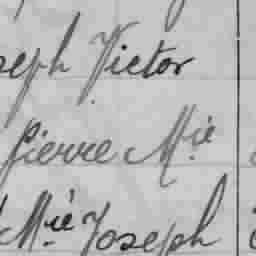 seph Victor
Pierre Mie
Mie Joseph